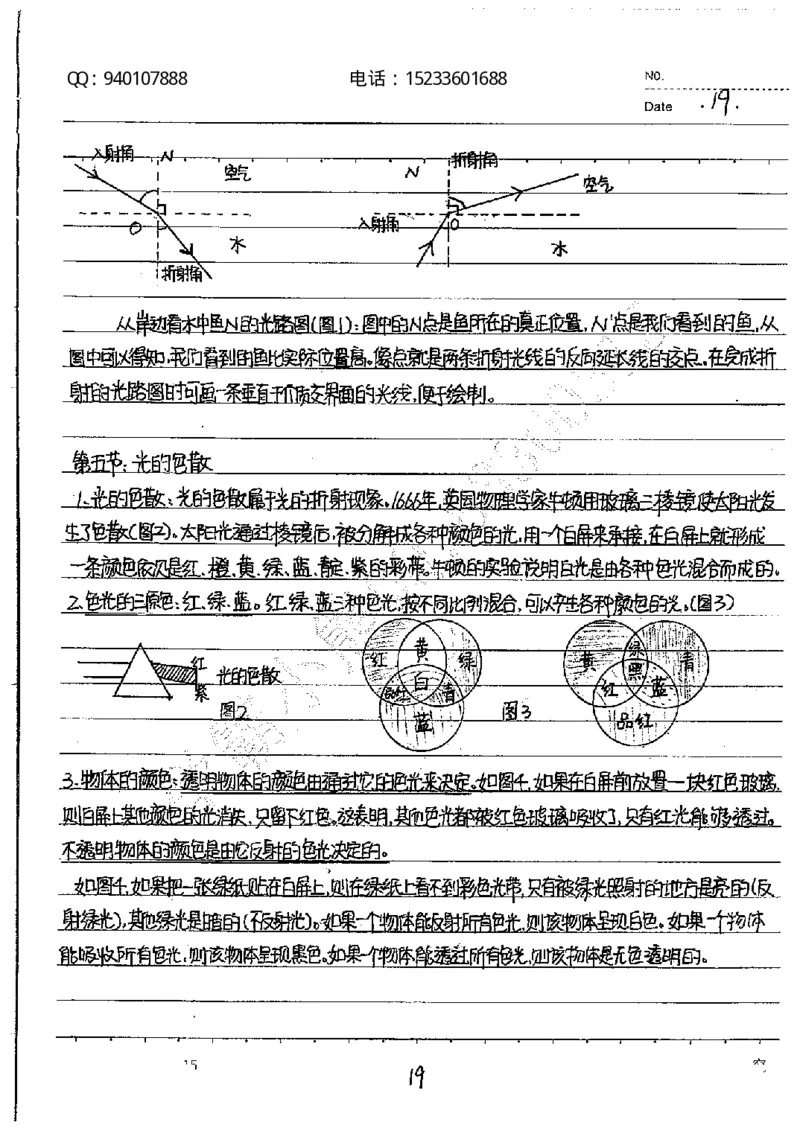 QQ：940107888 电话：15233601688 No.
Date .19.
入射角 N 空气 N 折射角 空气
O 水 入射角 O 水
折射角
从岸边看水中鱼N的光路图(图1)：图中的N点是鱼所在的真正位置，N'点是我们看到的鱼，从
图中可以得知，我们看到的鱼比实际位置高。像点就是两条折射光线的反向延长线的交点。在完成折
射的光路图时可画一条垂直于介质交界面的光线，便于绘制。
第五节：光的色散
1.光的色散：光的色散属于光的折射现象。1666年，英国物理学家牛顿用玻璃三棱镜使太阳光发
生了色散(图2)。太阳光通过棱镜后，被分解成各种颜色的光，用一个白屏来承接，在白屏上就形成
一条颜色依次是红、橙、黄、绿、蓝、靛、紫的彩带。牛顿的实验说明白光是由各种色光混合而成的。
2.色光的三原色：红、绿、蓝。红、绿、蓝三种色光，按不同比例混合，可以产生各种颜色的光。(图3)
红 紫 光的色散
图2
红 黄 绿 白 品红 青 蓝
图3
黄 绿 青 黑 红 蓝 品红
3.物体的颜色：透明物体的颜色由通过它的色光来决定。如图4，如果在白屏前放置一块红色玻璃，
则白屏上其他颜色的光消失，只留下红色。这表明，其他色光都被红色玻璃吸收了，只有红光能够透过。
不透明物体的颜色是由它反射的色光决定的。
如图4，如果把一张绿纸贴在白屏上，则在绿纸上看不到彩色光带，只有被绿光照射的地方是亮的(反
射绿光)，其他绿光是暗的(不反射光)。如果一个物体能反射所有色光，则该物体呈现白色。如果一个物体
能吸收所有色光，则该物体呈现黑色。如果一个物体能透过所有色光，则该物体是无色透明的。
19